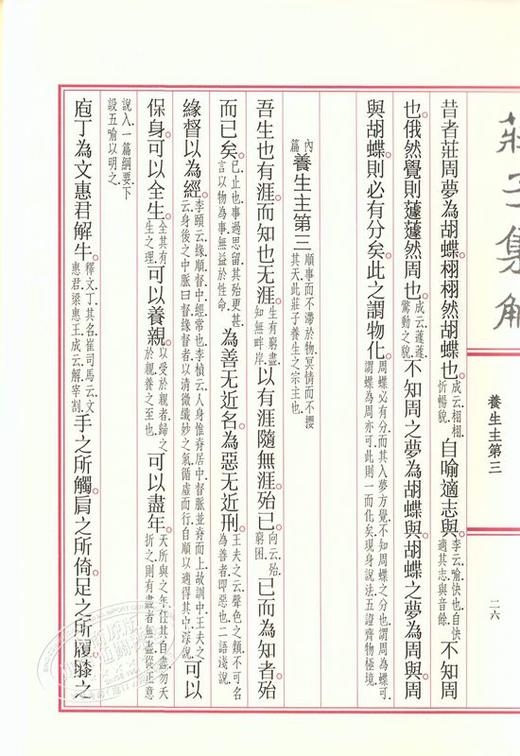 莊子集解
養生主第三
二六
昔者莊周夢為胡蝶栩栩然胡蝶也成云栩栩忻暢貌自喻適志與李云喻快也自快適其志與音餘不知周
也俄然覺則蘧蘧然周也成云蘧蘧驚動之貌不知周之夢為胡蝶與胡蝶之夢為周與周
與胡蝶則必有分矣此之謂物化周蝶必有分而其入夢方覺不知周蝶之分也謂周為蝶可謂蝶為周亦可此則一而化矣現身說法五證齊物極境
內篇養生主第三順事而不滯於物冥情而不攖其天此莊子養生之宗主也
吾生也有涯而知也无涯生有窮盡知無畔岸以有涯隨無涯殆已向云殆窮困已而為知者殆
而已矣已止也事過思留其殆更甚言以物為事無益於性命為善无近名為惡无近刑王夫之云聲色之類不可名為善者即惡也二語淺說
緣督以為經李頤云緣順督中經常也李楨云人身惟脊居中督脈並脊而上故訓中王夫之云身後之中脈曰督緣督者以清微纖妙之氣循虛而行自順以適得其中深說可以
保身可以全生全其有生之理可以養親以受於親者歸之於親養之至也可以盡年天所與之年任其自盡勿夭折之則有盡者無盡從正意
說入一篇綱要下設五喻以明之
庖丁為文惠君解牛釋文丁其名崔司馬云文惠君梁惠王成云解宰割手之所觸肩之所倚足之所履膝之